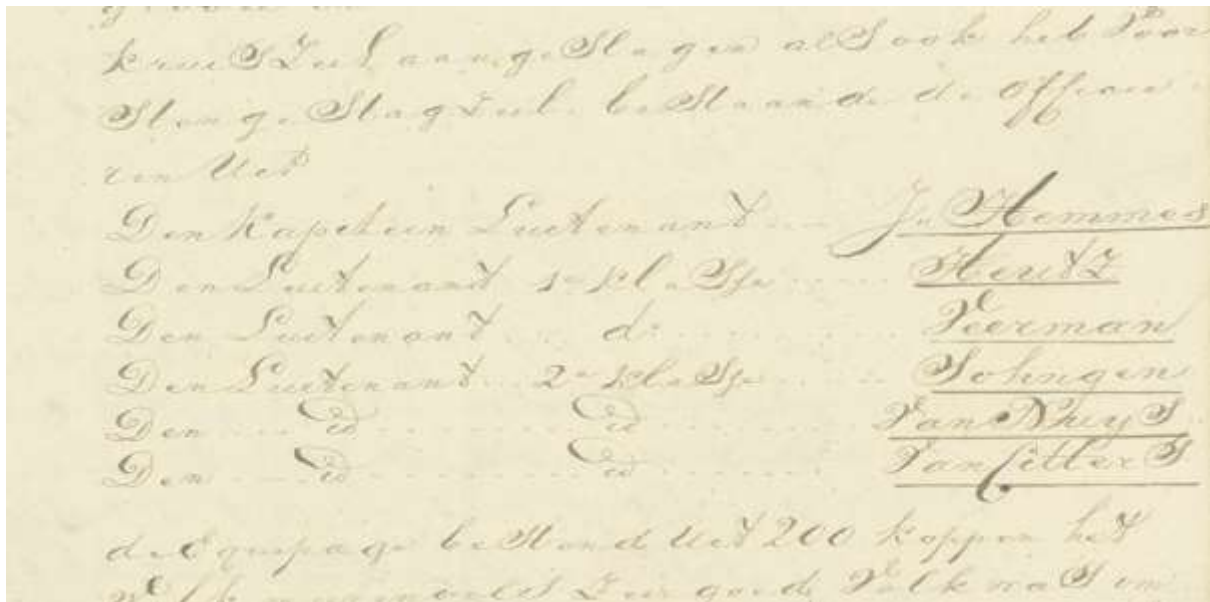 kruisZeil aangeslagen alsook het Voor
Stenge Stagzeil bestaande de officie
ren Uit
Den Kapitein Luitenant Jn Hemmes
Den Luitenant 1e klasse Heutz
Den Luitenant do Veerman
Den Luitenant 2e klasse Sohngen
Den id id Van Nuys
Den id id Van Citters
de Equipage bestond Uit 200 koppen het
Zeer goed Volk was om